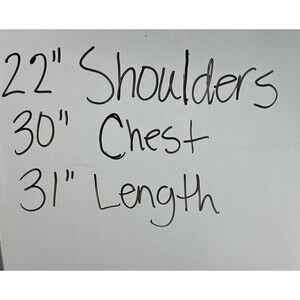 22" Shoulders
30" Chest
31" Length